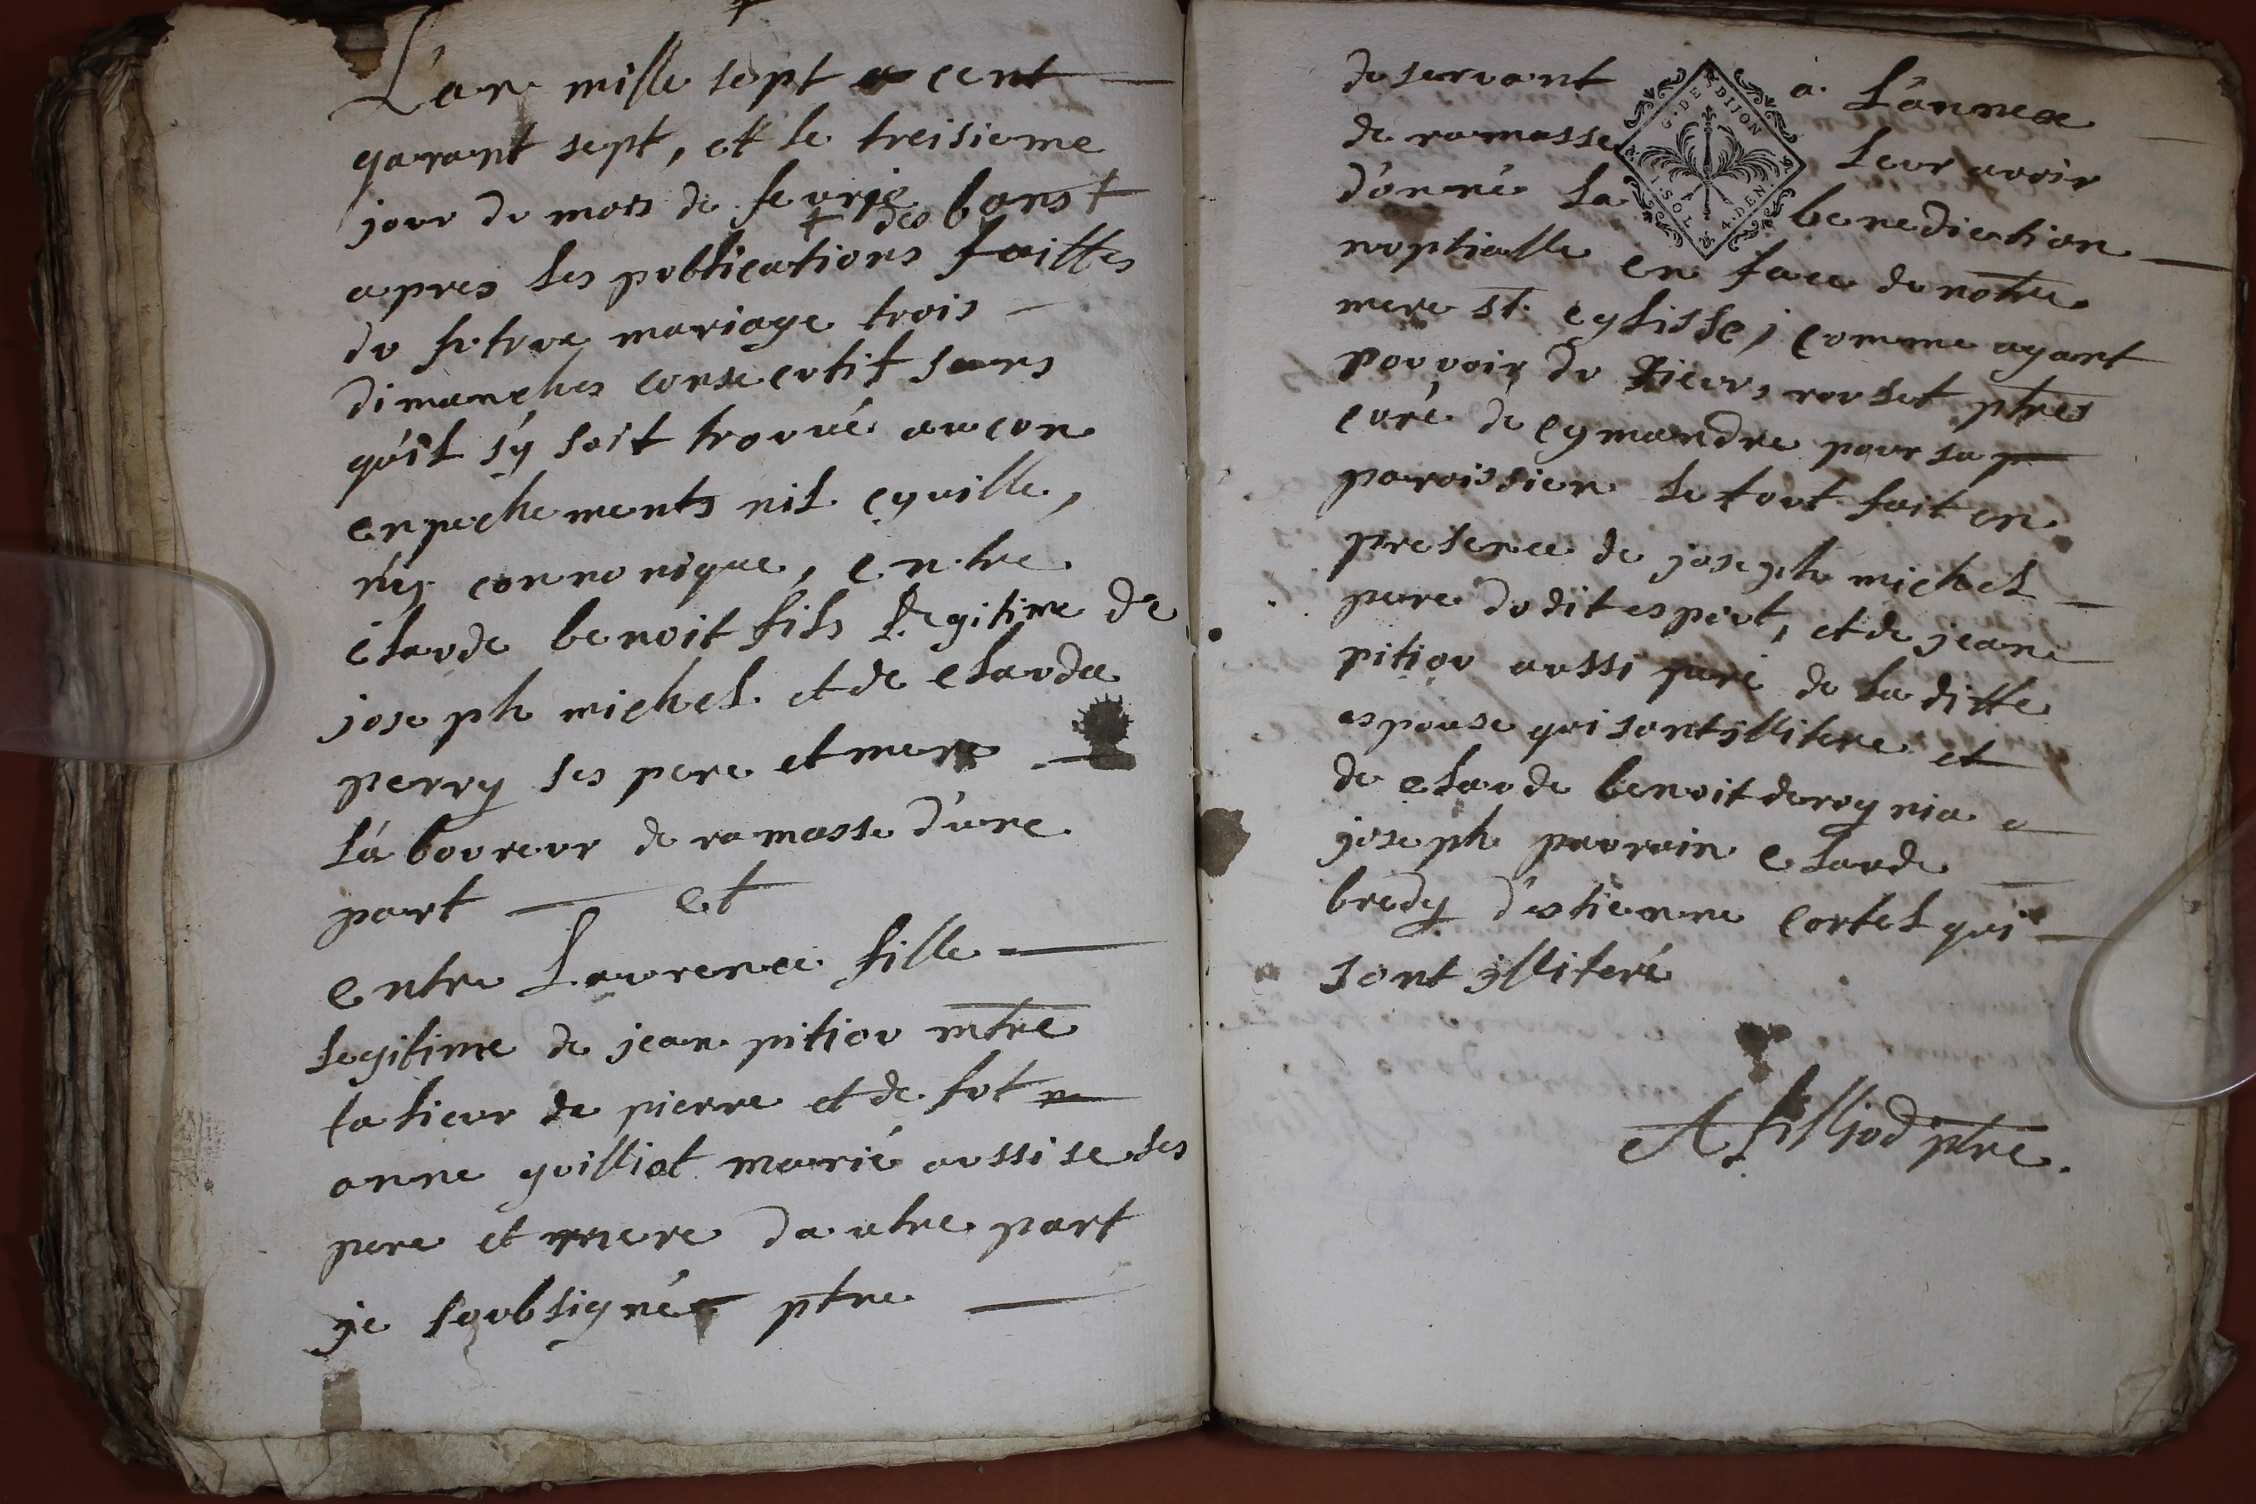 L'an mille sept cent
qarant sept, et le treisieme
jour du mois de feurje
+ des bans +
apres les publications faittes
du future mariage trois
dimanches consecutif sans
qu'il s'y soit trouvé aucun
enpechements nil cyuille,
n'y connonique, entre
claude benoit fils legitime de
joseph michel et de clauda
perry ses pere et mere
la'boureur de ramasse d'une
part et
entre Laurence fille
legitime de jean pitiou mtre
talieur de pierre et de fut
anne guilliot marié aussi se ses
pere et mere dautre part
je soubsigné ptre
deservant a L'annex
de ramasse leur avoir
d'onné la benediction
noptialle en face de notre
mere st. eglisse, comme ayant
pouvoir du sieur, rouset ptres
curé de cymandre pour sa
paroissien le tout fait en
presence de joseph michel
pere dudit espout, et de jean
pitiou aussi peré de la ditte
espouse qui sont illitere et
de claude benoit derognia
joseph pauvain claude
bredy d'estienne cortel qui
sont illiteré
A filliod ptre.
G. DE DIJON
1. SOL 4. DEN.